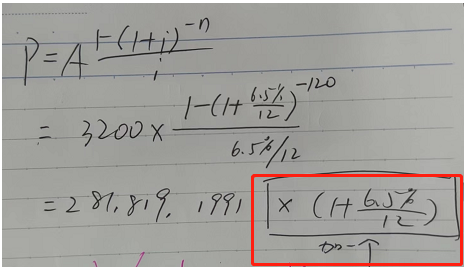 P = A (1-(1+i)^-n)/i
= 3200 × (1-(1+6.5%/12)^-120)/(6.5%/12)
= 281,819.1991 × (1+6.5%/12)
↑